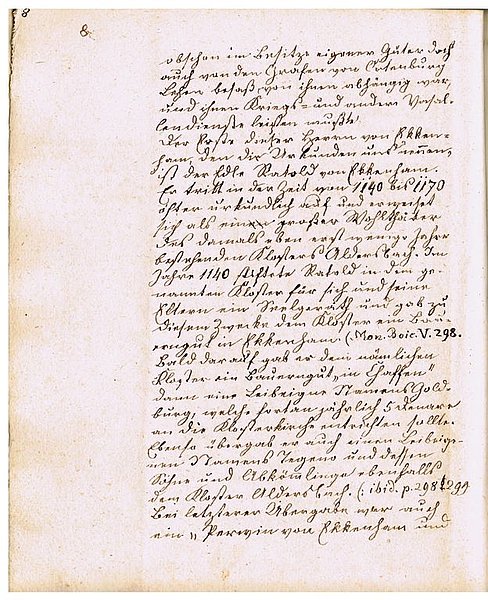 8
8.
obschon im Besitze eigener Güter doch
auch von den Grafen von Ortenburg
Lehen besaß, von ihnen abhängig war,
und ihnen Kriegs- und andere Vasal-
lendienste leisten mußte.
Der Erste dieser Herren von Ekken-
ham, den die Urkunden uns nennen,
ist der Edle Ratold von Ekkenham.
Er tritt in der Zeit von 1140 bis 1170
öfter urkundlich auf und erweiset
sich als einen großer Wohlthäter
des damals eben erst wenige Jahre
bestehenden Klosters Aldersbach. Im
Jahre 1140 stiftete Ratold in dem ge-
nannten Kloster für sich und seine
Eltern ein Seelgeräth und gab zu
diesem Zwecke dem Kloster ein Bau-
erngut in Ekkenham (Mon. Boic. V. 298.
Bald darauf gab er dem nämlichen
Kloster ein Bauerngut „in Chaffen"
dann eine Leibeigne Namens Gold-
burg, welche fortan jährlich 5 Denare
an die Klosterkirche entrichten sollte.
Ebenso übergab er auch einen Leibeige-
nen Namens Tegeno und dessen
Söhne und Abkömmlinge ebenfalls
dem Kloster Aldersbach. (: ibid. p. 298 & 299
Bei letzterer Übergabe war auch
ein „Perwin von Ekkenham und